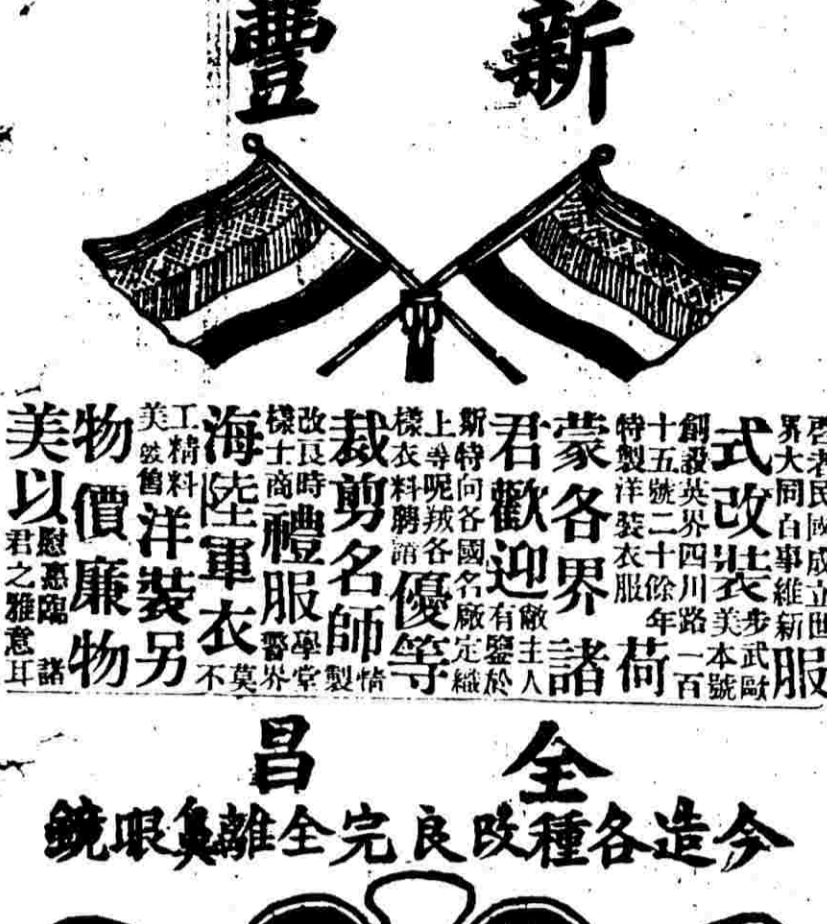 新豐
啓者民國成立世
界大同百事維新服
式改裝步武歐
美本號
創設英界四川路一百
十五號二十餘年
特製洋裝衣服荷
蒙各界諸
君歡迎敝主人
有鑒於
斯特向各國名廠定織
上等呢羢各
樣衣料聘請優等
裁剪名師情
製
改良時
樣士商禮服學堂
警界
海陸軍衣莫
不
工精料
美舊洋裝另
物價廉物
美以慰惠臨諸
君之雅意耳
全昌
今造各種改良完全離鼻眼鏡